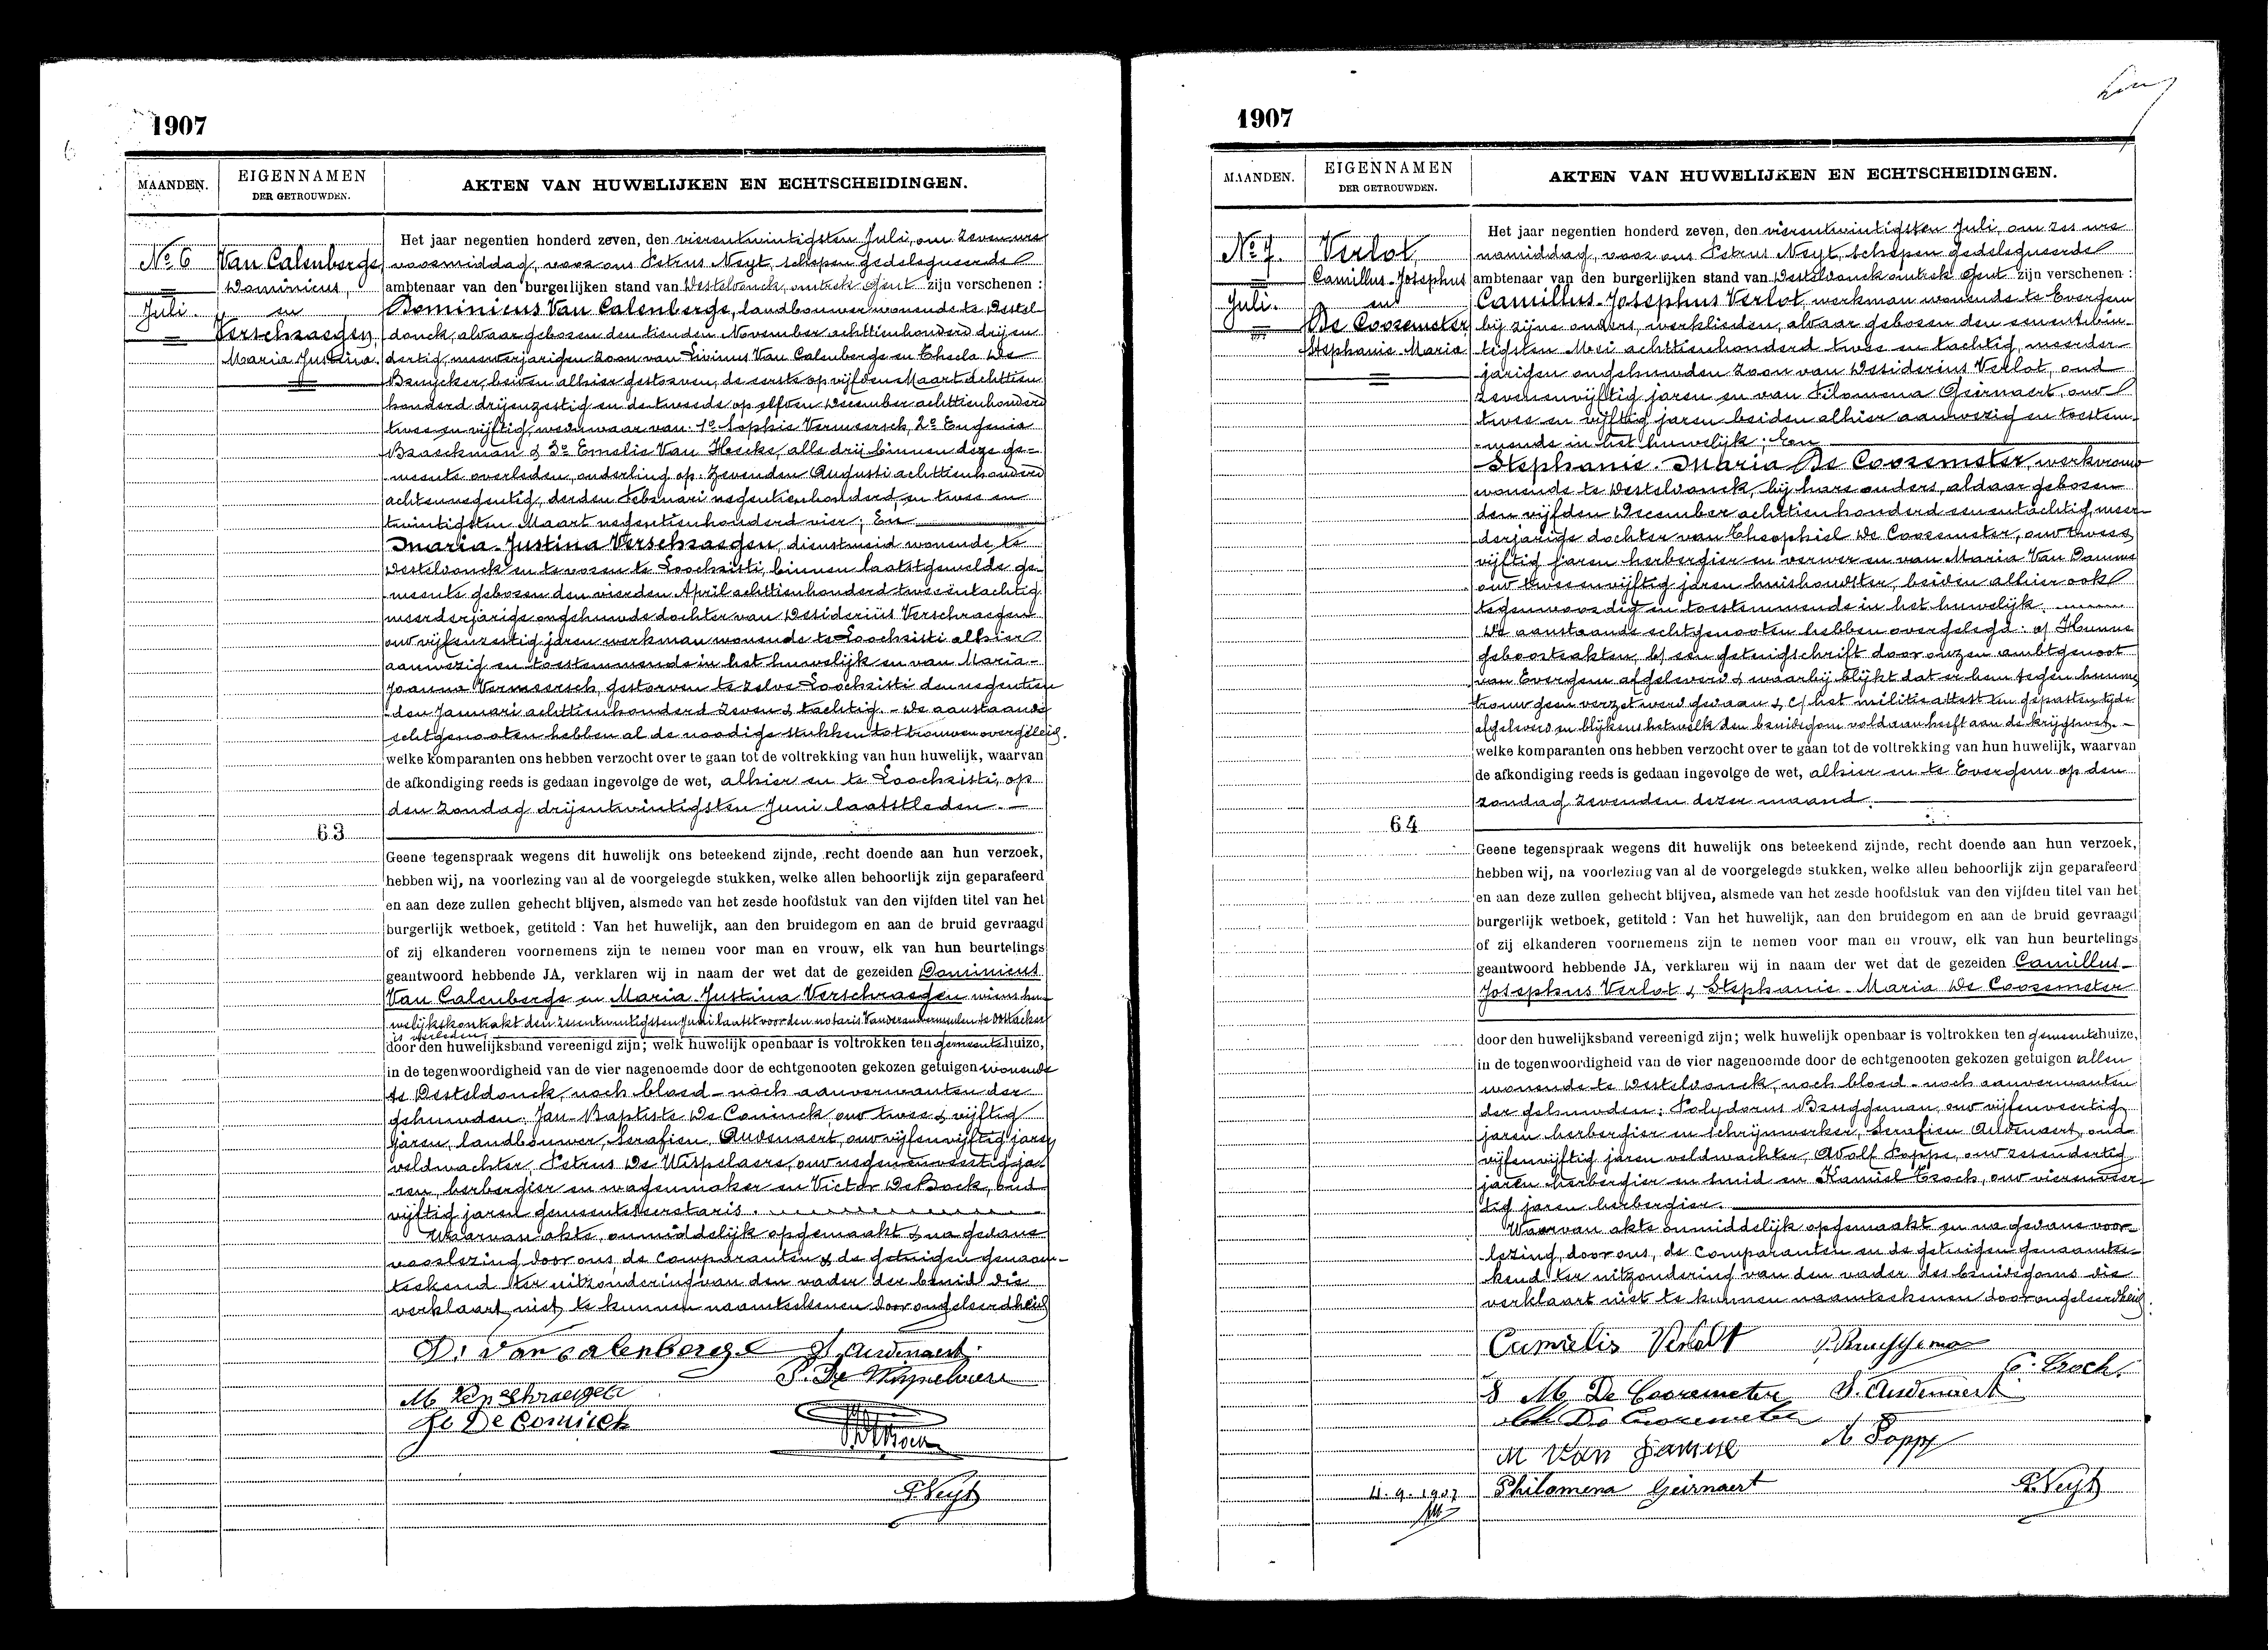 1907
MAANDEN.
EIGENNAMEN
DER GETROUWDEN.
AKTEN VAN HUWELIJKEN EN ECHTSCHEIDINGEN.
No 6
Juli.
Van Calenberge
Dominicus,
en
Verschraegen,
Maria Justina.
63
Het jaar negentien honderd zeven, den vierentwintigsten Juli, om zeven ure
voormiddag, voor ons Petrus Neyt, schepen gedelegueerde
ambtenaar van den burgerlijken stand van Desteldonck, omtrek Gent zijn verschenen :
Dominicus Van Calenberge, landbouwer wonende te Destel
donck, alwaar geboren den tienden November achttienhonderd drij en
dertig, meerderjarigen zoon van Livinus Van Calenberge en Thecla De
Bruycker, beiden alhier gestorven, de eerste op vijfden Maart achttien
honderd drijenzestig en de tweede op elfden December achttienhonderd
twee en vijftig, weduwaar van: 1o Sophie Vermeersch, 2o Eugenia
Braeckman & 3o Emelie Van Hecke, alle drij binnen deze ge-
meente overleden, onderling op: Zevenden Augusti achttienhonderd
achtennegentig, derden Februari negentienhonderd en twee en
twintigsten Maart negentienhonderd vier; En
Maria-Justina Verschraegen, dienstmeid wonende te
Desteldonck en tevoren te Loochristi, binnen laatstgemelde ge-
meente geboren den vierden April achttienhonderd tweeëntachtig
meerderjarige ongehuwde dochter van Desiderius Verschraegen
oud vijfenzestig jaren werkman wonende te Loochristi alhier
aanwezig en toestemmende in het huwelijk en van Maria-
Joanna Vermeersch, gestorven te zelve Loochristi den negentien
den Januari achttienhonderd zeven & tachtig. - De aanstaande
echtgenooten hebben al de noodige stukken tot trouwen overgeleid.
welke komparanten ons hebben verzocht over te gaan tot de voltrekking van hun huwelijk, waarvan
de afkondiging reeds is gedaan ingevolge de wet, alhier en te Loochristi, op
den Zondag drijentwintigsten Juni laatstleden. -
Geene tegenspraak wegens dit huwelijk ons beteekend zijnde, recht doende aan hun verzoek,
hebben wij, na voorlezing van al de voorgelegde stukken, welke allen behoorlijk zijn geparafeerd
en aan deze zullen gehecht blijven, alsmede van het zesde hoofdstuk van den vijfden titel van het
burgerlijk wetboek, getiteld : Van het huwelijk, aan den bruidegom en aan de bruid gevraagd
of zij elkanderen voornemens zijn te nemen voor man en vrouw, elk van hun beurtelings
geantwoord hebbende JA, verklaren wij in naam der wet dat de gezeiden Dominicus
Van Calenberge en Maria Justina Verschraegen wiens hu-
welijkskontrakt den zesentwintigsten Juni laatst voor den notaris te Oostacker
is verleden,
door den huwelijksband vereenigd zijn; welk huwelijk openbaar is voltrokken ten gemeentehuize,
in de tegenwoordigheid van de vier nagenoemde door de echtgenooten gekozen getuigen wonende
te Desteldonck, noch bloed- noch aanverwanten der
gehuwden: Jan-Baptiste De Coninck oud twee & vijftig
jaren, landbouwer, Serafien Audenaert, oud vijfenvijftig jaren
veldwachter, Petrus De Wispelaere, oud negenenveertig ja-
ren, herbergier en wagenmaker en Victor De Bock, oud
vijftig jaren gemeentesecretaris.
Waarvan akte, onmiddelijk opgemaakt & na gedane
voorlezing door ons de Comparanten & de getuigen genaam-
teekend ter uitzondering van den vader der bruid die
verklaart niet te kunnen naamteekenen door ongeleerdheid
D: Van calenberge S. Audenaert.
P. De Wispelaere
M. Verschraegen
J. De Coninck
P. Neyt
1907
MAANDEN.
EIGENNAMEN
DER GETROUWDEN.
AKTEN VAN HUWELIJKEN EN ECHTSCHEIDINGEN.
No 7.
Juli.
Verlot
Camillus-Josephus
en
De Cooremeter
Stephanie Maria
64
Het jaar negentien honderd zeven, den vierentwintigsten Juli, om zes ure
namiddag, voor ons Petrus Neyt, schepen gedelegueerde
ambtenaar van den burgerlijken stand van Desteldonck omtrek Gent zijn verschenen :
Camillus-Josephus Verlot, werkman wonende te Evergem
bij zijne ouders, werklieden, alwaar geboren den eenentwin-
tigsten Mei achttienhonderd twee en tachtig, meerder-
jarigen ongehuwden zoon van Desiderius Verlot, oud
zevenenvijftig jaren en van Filomena Geirnaert, oud
twee en vijftig jaren beiden alhier aanwezig en toestem-
mende in het huwelijk; En
Stephanie-Maria De Cooremeter, werkvrouw
wonende te Desteldonck, bij hare ouders, aldaar geboren
den vijfden December achttienhonderd eenentachtig, meer-
derjarige dochter van Theophiel De Cooremeter, oud twee &
vijftig jaren herbergier en verwer en van Maria Van Damme
oud tweeenvijftig jaren huishoudster, beiden alhier ook
tegenwoordig en toestemmende in het huwelijk.
De aanstaande echtgenooten hebben overgelegd: a/ Hunne
geboorteakten, b/ een getuigschrift door onzen ambtgenoot
van Evergem afgeleverd & waarbij blijkt dat er hem tegen hunne
trouw geen verzet werd gedaan & c/ het militie attest ten gepasten tijde
afgeleverd en blijkens hetwelk den bruidegom voldaan heeft aan de krijgswet. -
welke komparanten ons hebben verzocht over te gaan tot de voltrekking van hun huwelijk, waarvan
de afkondiging reeds is gedaan ingevolge de wet, alhier en te Evergem op den
zondag zevenden dezer maand.
Geene tegenspraak wegens dit huwelijk ons beteekend zijnde, recht doende aan hun verzoek,
hebben wij, na voorlezing van al de voorgelegde stukken, welke allen behoorlijk zijn geparafeerd
en aan deze zullen gehecht blijven, alsmede van het zesde hoofdstuk van den vijfden titel van het
burgerlijk wetboek, getiteld : Van het huwelijk, aan den bruidegom en aan de bruid gevraagd
of zij elkanderen voornemens zijn te nemen voor man en vrouw, elk van hun beurtelings
geantwoord hebbende JA, verklaren wij in naam der wet dat de gezeiden Camillus-
Josephus Verlot & Stephanie-Maria De Cooremeter
door den huwelijksband vereenigd zijn; welk huwelijk openbaar is voltrokken ten gemeentehuize,
in de tegenwoordigheid van de vier nagenoemde door de echtgenooten gekozen getuigen allen
wonende te Desteldonck, noch bloed- noch aanverwanten
der gehuwden: Polydorus Bruggeman, oud vijfenveertig
jaren herbergier en schrijnwerker, Serafien Audenaert, oud
vijfenvijftig jaren veldwachter, Adolf Poppe, oud zesendertig
jaren herbergier en smid en Kamiel Croch, oud vierenveer-
tig jaren herbergier.
Waarvan akte onmiddelijk opgemaakt en na gedane voor-
lezing, door ons, de Comparanten en de getuigen genaamtee-
kend ter uitzondering van den vader des bruidegoms die
verklaart niet te kunnen naamteekenen door ongeleerdheid.
Camielis Verlodt P. Bruggeman
C. Croch.
S M. De Cooremeter S. Audenaert
De Cooremeter
A Poppe
M Van Damme
11.9.1907
Philomena Geirnaert P. Neyt